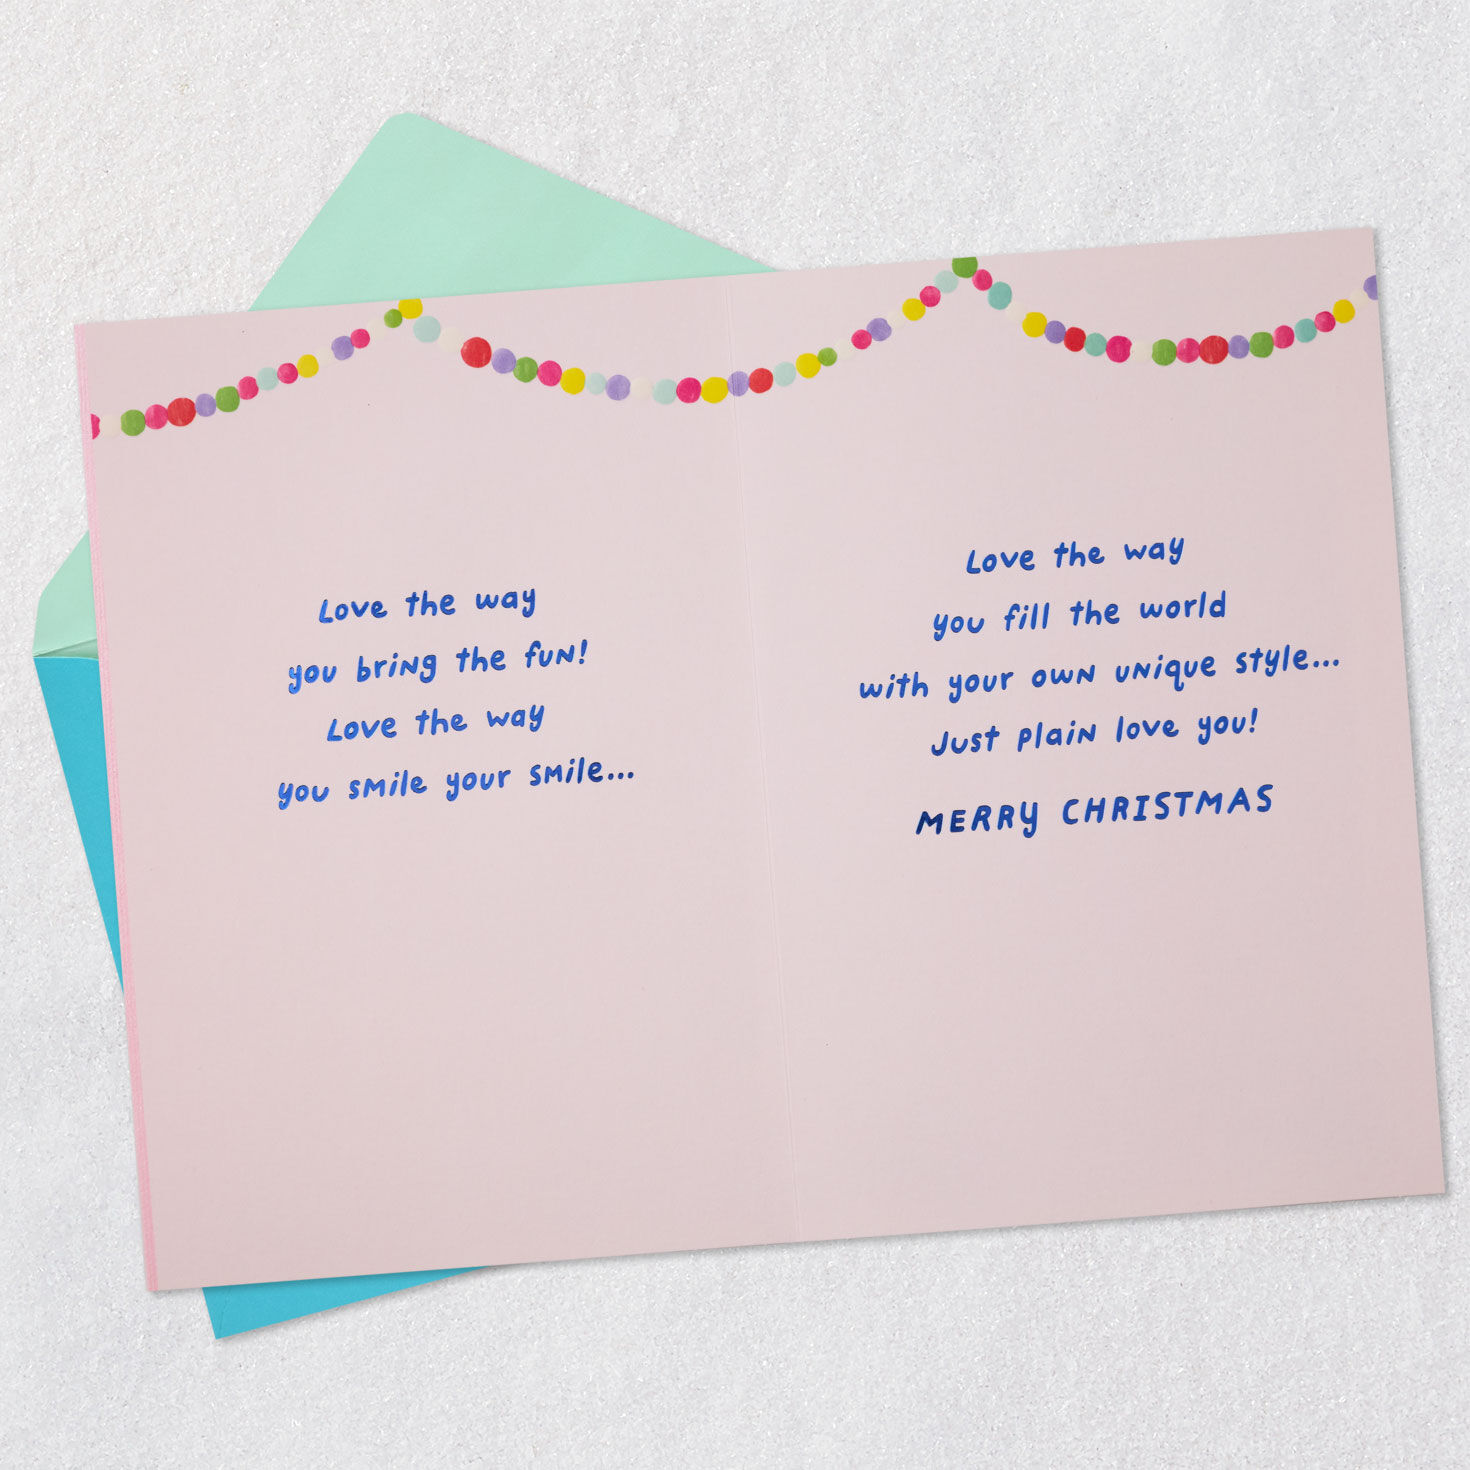 Love the way
you bring the fun!
Love the way
you smile your smile...
Love the way
you fill the world
with your own unique style...
Just plain love you!
MERRY CHRISTMAS